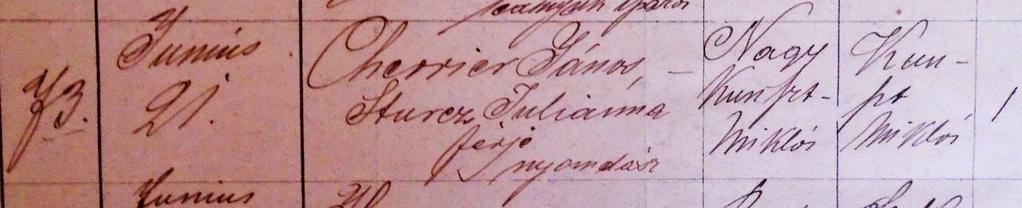 Junius
73. 21.
Cherrier János,
Sturcz Julianna
férje
nyomdász
Nagy
Kunszt-
Miklós
Kun-
szt
Miklós
1
Junius